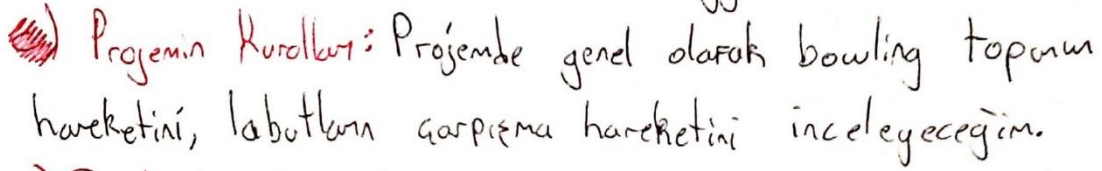 Projemin Kuralları: Projemde genel olarak bowling topunun
hareketini, labutların çarpışma hareketini inceleyeceğim.